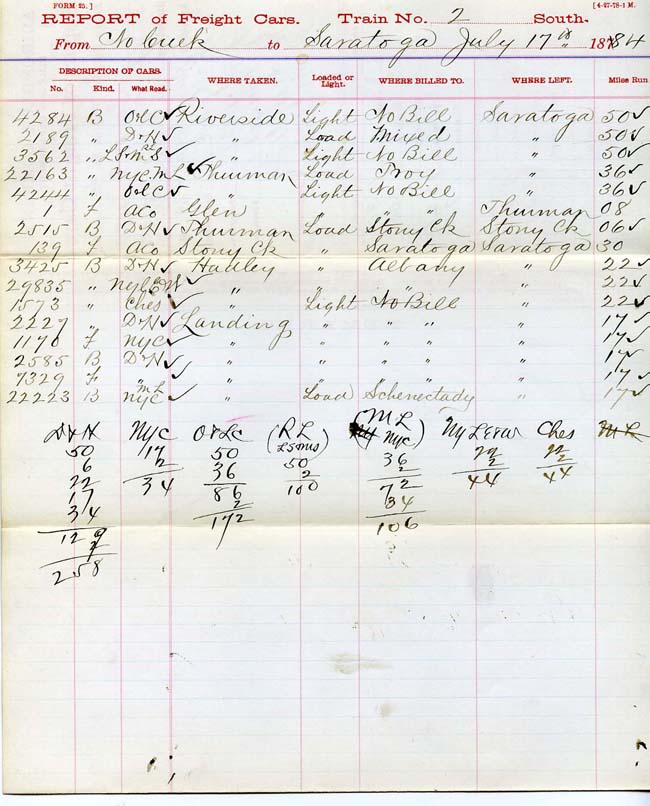 FORM 25. ] [ 4-27-78-1 M.
REPORT of Freight Cars. Train No. 2 South.
From No Cuek to Saratoga July 17th 1884
DESCRIPTION OF CARS. WHERE TAKEN. Loaded or Light. WHERE BILLED TO. WHERE LEFT. Miles Run
No. Kind. What Road.
4284 B O&LC ✓ Riverside Light No Bill Saratoga 50 ✓
2189 " D&H ✓ " Load Mixed " 50 ✓
3562 " LS&MS ✓ " Light No Bill " 50 ✓
22163 " NYC ML ✓ Thurman Load Troy " 36 ✓
4244 " O&LC ✓ " Light No Bill " 36 ✓
1 F ACo Glen " " " Thurman 08
2515 B D&H ✓ Thurman Load Stony Ck Stony Ck 06 ✓
139 F ACo Stony Ck " Saratoga Saratoga 30
3425 B D&H ✓ Hadley " Albany " 22 ✓
29835 " " " " " 22 ✓
1573 " Ches ✓ " Light No Bill " 22 ✓
2227 " D&H ✓ Landing " " " " 17 ✓
1170 F NYC ✓ " " " " " 17 ✓
2585 B D&H ✓ " " " " " 17 ✓
7329 F " ✓ " " " " " 17 ✓
22223 B NYC ML ✓ " Load Schenectady " 17 ✓
D&H NYC O&LC (RL LS&MS) (ML NYC) Ches ML
50 17 50 50 36 22 22
6 2 36 2 2 2 2
22 34 86 100 72 44 44
17 2 34
34 172 106
129
2
258